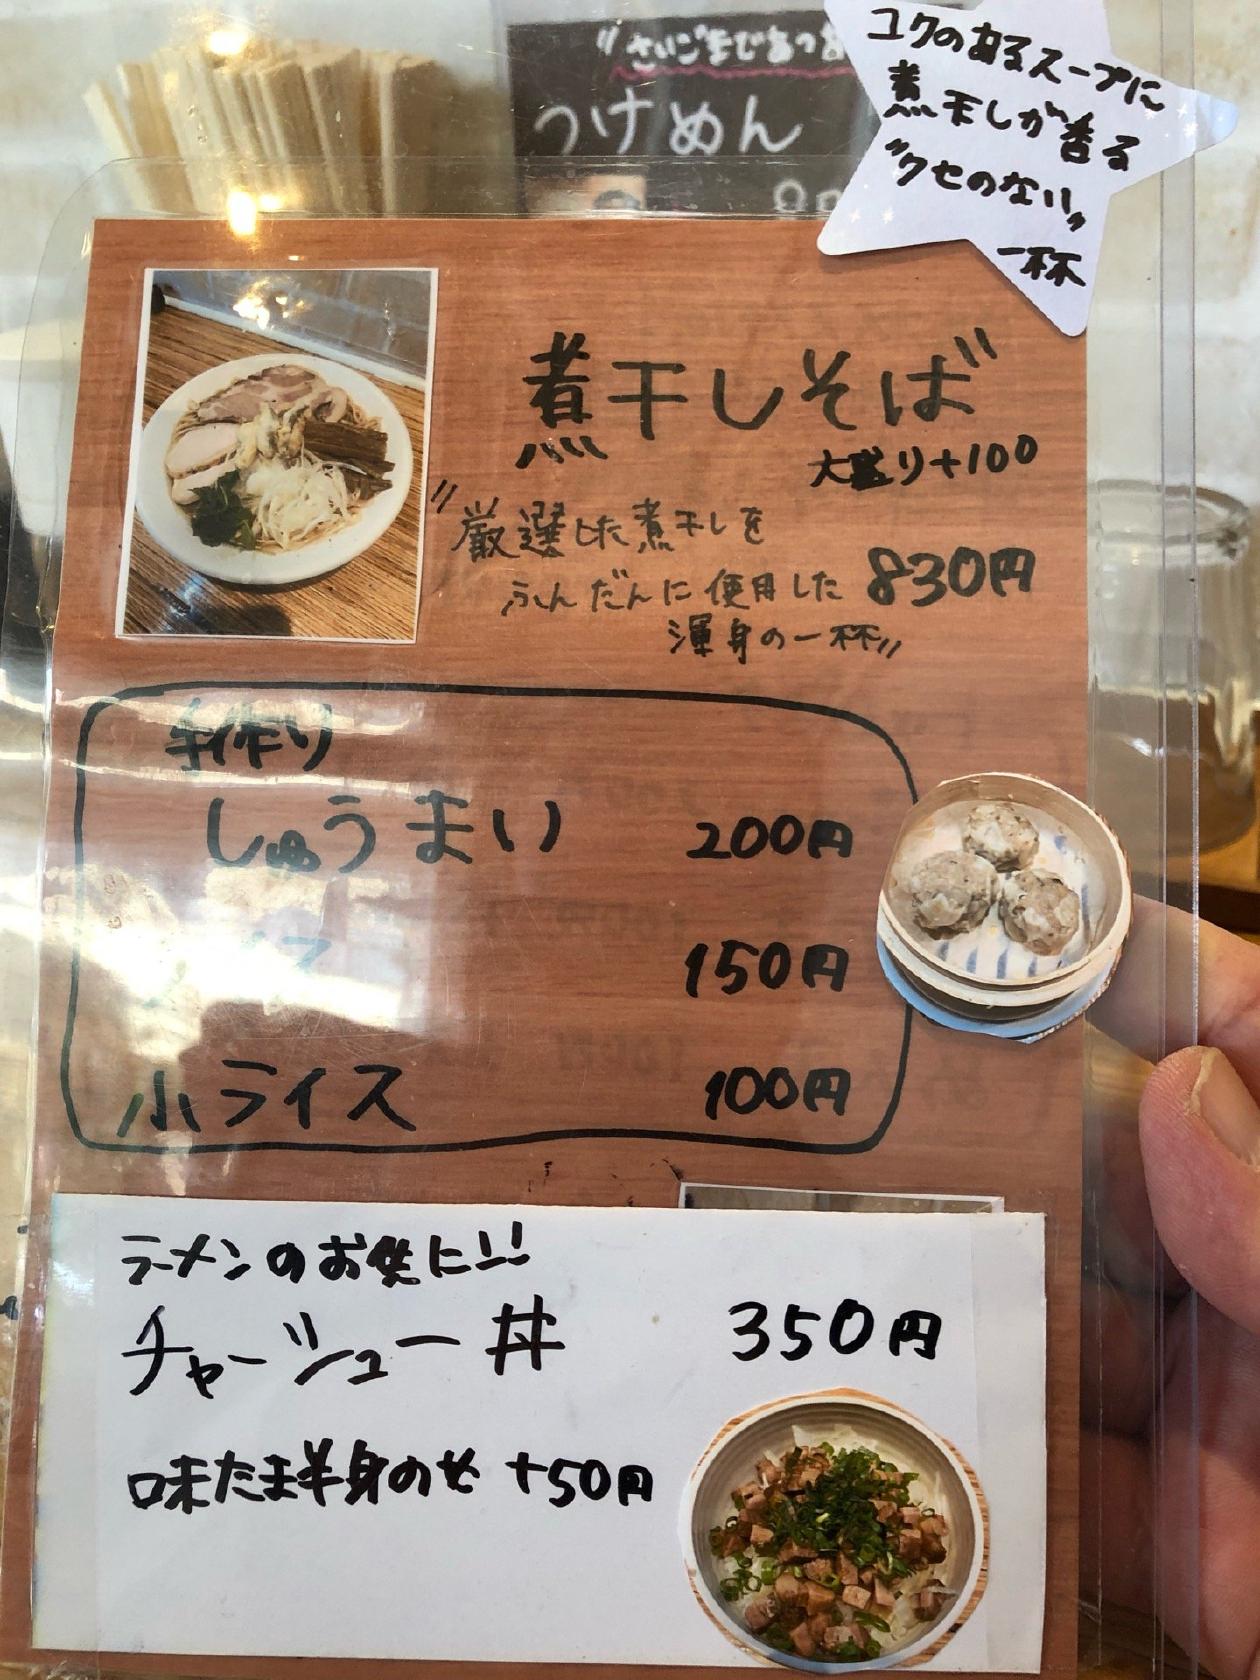 "さいごまであつあ
つけめん
コクのあるスープに
煮干しが香る
"クセのない"
一杯
煮干しそば
大盛り+100
"厳選した煮干しを
ふんだんに使用した
渾身の一杯"
830円
手作り
しゅうまい 200円
150円
小ライス 100円
ラーメンのお供に!!
チャーシュー丼 350円
味たま半身のせ +50円